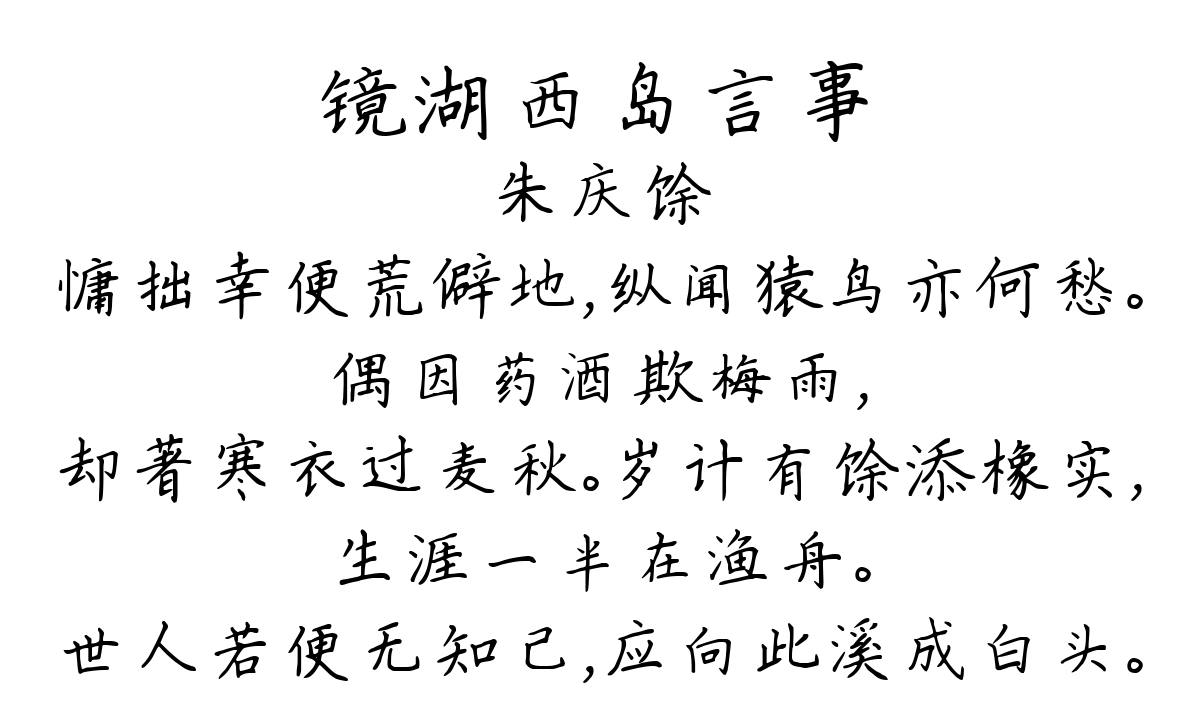 镜湖西岛言事
朱庆馀
慵拙幸便荒僻地,纵闻猿鸟亦何愁。
偶因药酒欺梅雨,
却著寒衣过麦秋。岁计有馀添橡实,
生涯一半在渔舟。
世人若便无知己,应向此溪成白头。